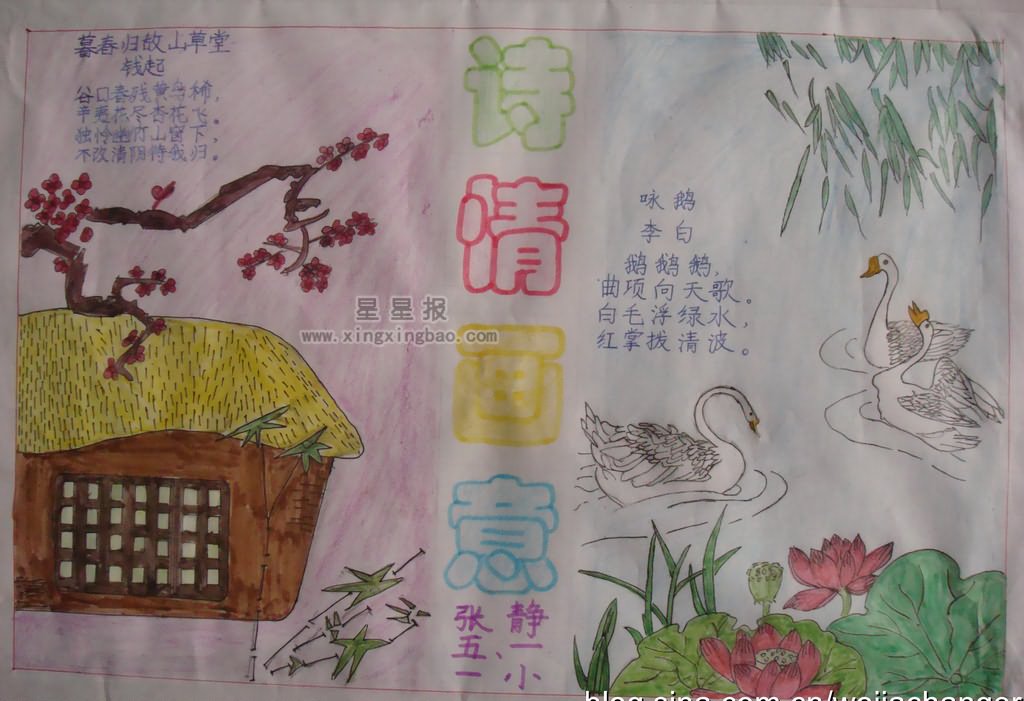 暮春归故山草堂
钱起
谷口春残黄鸟稀，
辛夷花尽杏花飞。
独怜幽竹山窗下，
不改清阴待我归。
诗
情
画
意
张静
五、一
一小
咏鹅
李白
鹅鹅鹅，
曲项向天歌。
白毛浮绿水，
红掌拨清波。
星星报
www.xingxingbao.com